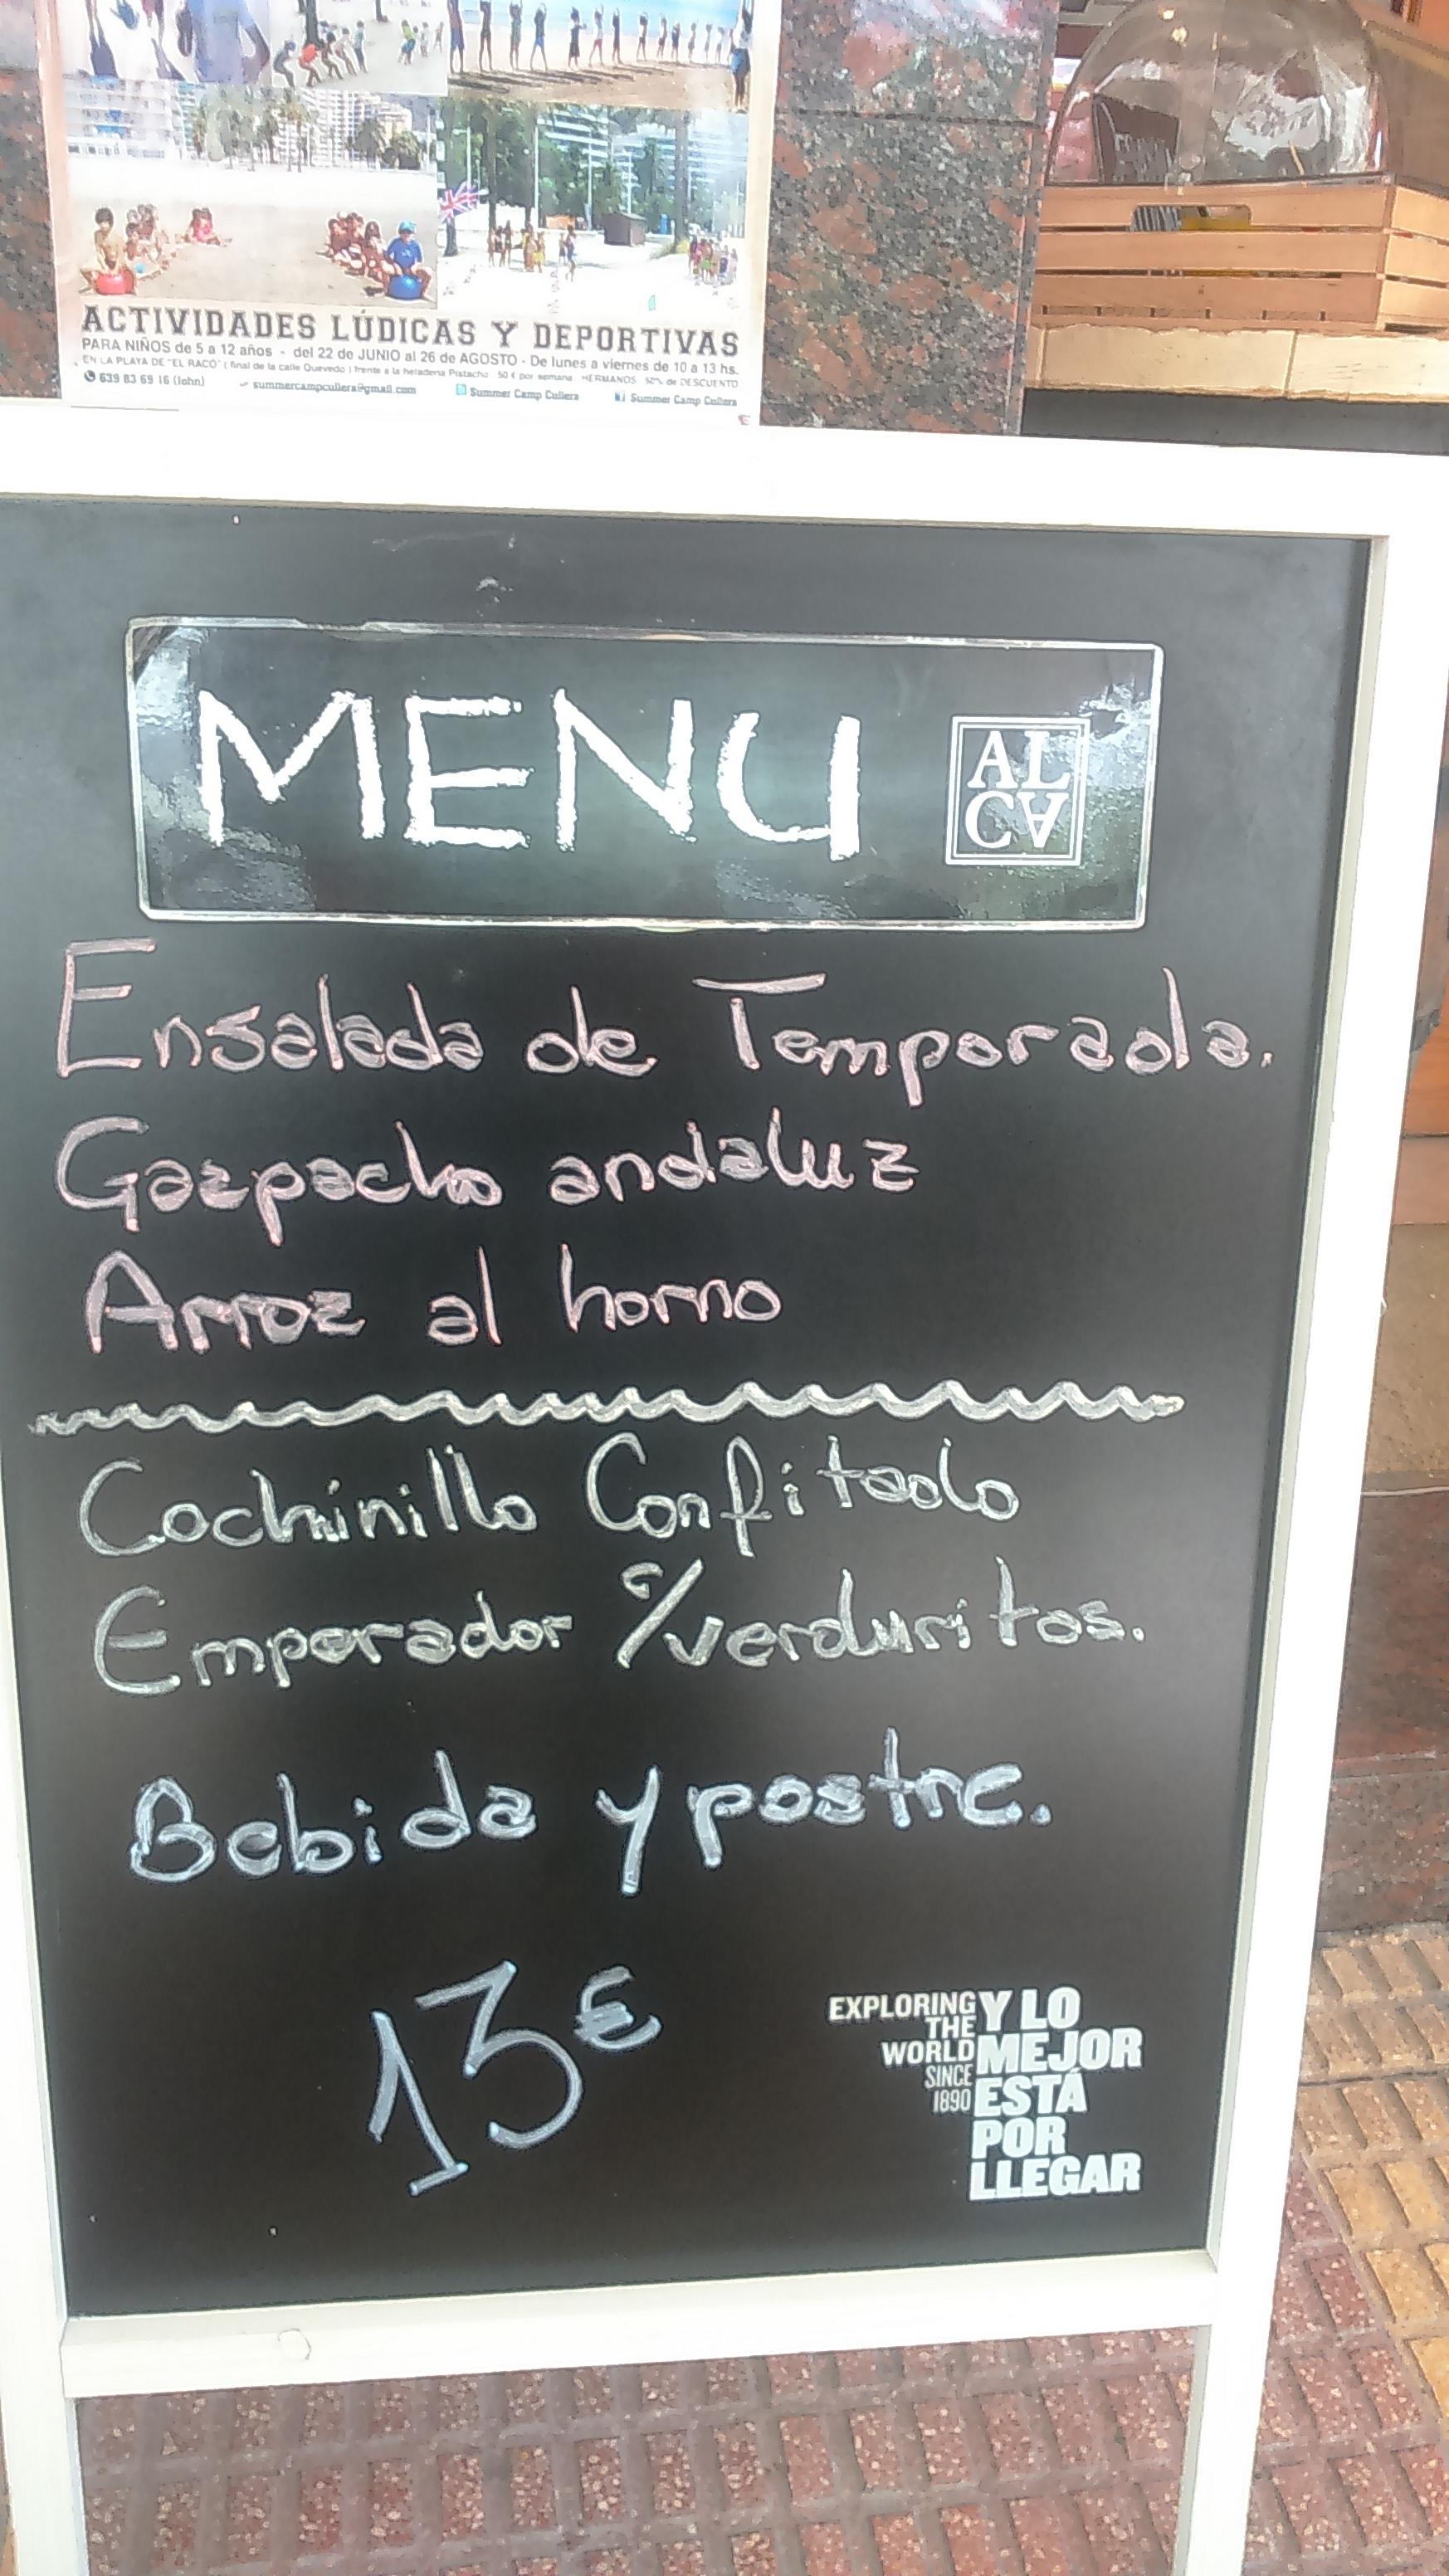 ACTIVIDADES LÚDICAS Y DEPORTIVAS
PARA NIÑOS de 5 a 12 años - del 22 de JUNIO al 26 de AGOSTO - De lunes a viernes de 10 a 13 hs.
EN LA PLAYA DE "EL RACÓ" ( final de la calle Quevedo ) frente a la heladeria Pistacho 50 € por semana HERMANOS 50% de DESCUENTO
639 83 69 16 (John) summercampcullera@gmail.com Summer Camp Cullera Summer Camp Cullera
MENU
AL
CA
Ensalada de Temporada.
Gazpacho andaluz
Arroz al horno
Cochinillo Confitado
Emperador c/verduritas.
Bebida y postre.
13€
EXPLORING
THE
WORLD
SINCE
1890
Y LO
MEJOR
ESTÁ
POR
LLEGAR